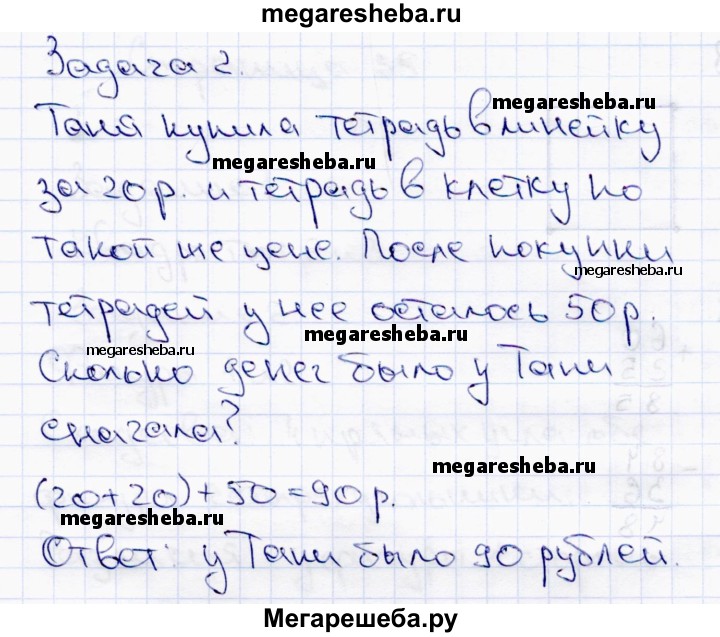 megaresheba.ru
Задача 2.
megaresheba.ru
Таня купила тетрадь в линейку
megaresheba.ru
за 20 р. и тетрадь в клетку по
такой же цене. После покупки
megaresheba.ru
тетрадей у нее осталось 50 р.
megaresheba.ru
megaresheba.ru
Сколько денег было у Тани
сначала?
megaresheba.ru
(20+20)+50=90 р.
megaresheba.ru
Ответ: у Тани было 90 рублей.
Мегарешеба.ру